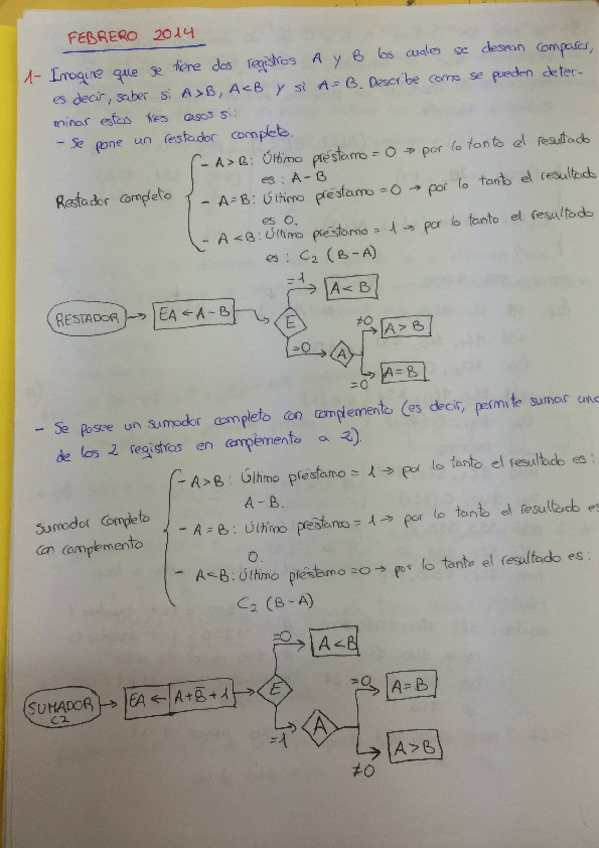 FEBRERO 2014
1- Imagine que se tiene dos registros A y B los cuales se desean comparar,
es decir, saber si A>B, A<B y si A=B. Describe como se pueden deter-
minar estos tres casos si:
- Se pone un restador completo.
- A>B: Último préstamo = 0 → por lo tanto el resultado
es: A-B
Restador completo
- A=B: Último préstamo = 0 → por lo tanto el resultado
es 0.
- A<B: Último préstamo = 1 → por lo tanto el resultado
es: C2 (B-A)
RESTADOR → EA ← A-B → E
=1 A<B
=0 A
≠0 A>B
=0 A=B
- Se posee un sumador completo con complemento (es decir, permite sumar uno
de los 2 registros en complemento a 2).
- A>B: Último préstamo = 1 → por lo tanto el resultado es:
A-B.
Sumador Completo
con complemento
- A=B: Último préstamo = 1 → por lo tanto el resultado es
0.
- A<B: Último préstamo = 0 → por lo tanto el resultado es:
C2 (B-A)
SUMADOR C2 → EA ← A+B̅+1 → E
=0 A<B
=1 A
=0 A=B
≠0 A>B